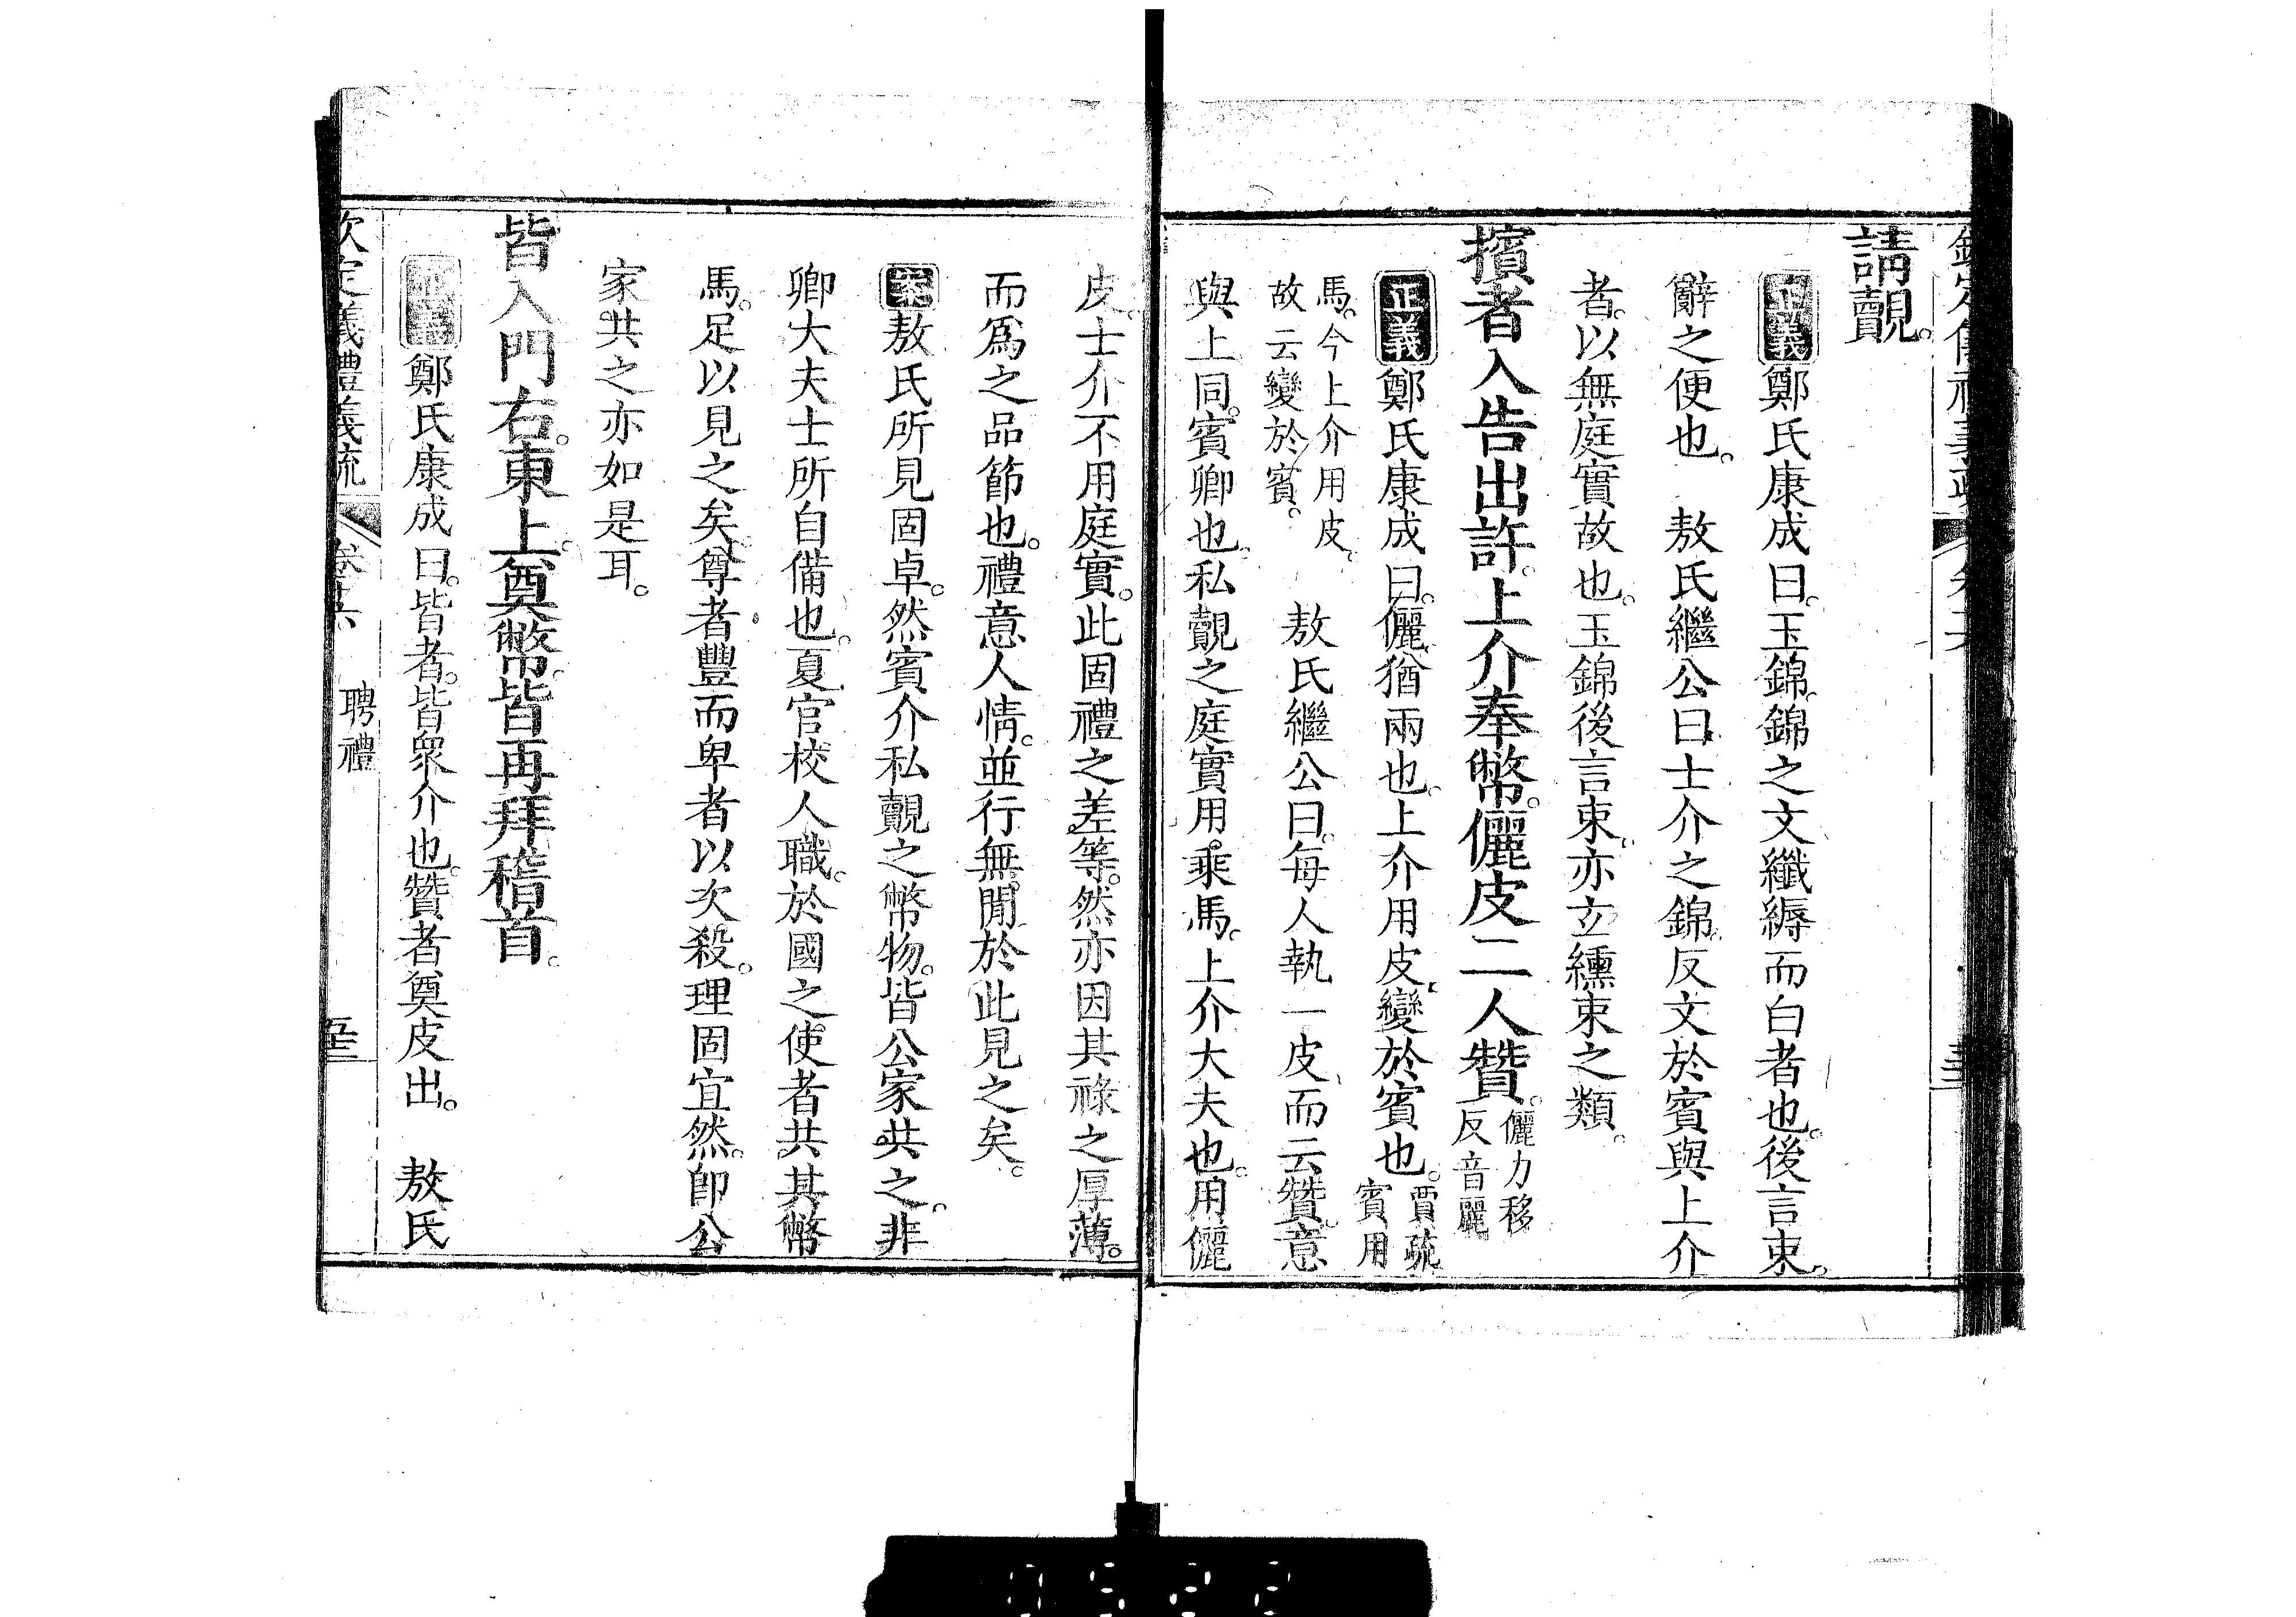 請觀。
正義鄭氏康成曰。玉錦。錦之文纖縟而白者也。後言束。
辭之便也。　敖氏繼公曰士介之錦。反文於賓與上介
者。以無庭實故也。玉錦後言束。亦玄纁束之類。
擯者入告出許。上介奉幣。儷皮二人贊。儷力移反音麗
正義鄭氏康成曰。儷。猶兩也。上介用皮。變於賓也。賈疏賓用
馬。今上介用皮。故云變於賓。　敖氏繼公曰。每人執一皮而云贊。意
與上同。賓卿也。私覿之庭實用乘馬。上介大夫也。用儷
皮。士介不用庭實。此固禮之差等。然亦因其祿之厚薄。
而爲之品節也。禮意人情。並行無閒。於此見之矣。
案敖氏所見固卓。然賓介私覿之幣物。皆公家共之。非
卿大夫士所自備也。夏官校人職。於國之使者共其幣
馬。足以見之矣。尊者豐而卑者以次殺。理固宜然。卽公
家共之亦如是耳。
皆入門右。東上。奠幣。皆再拜稽首。
正義鄭氏康成曰。皆者。皆衆介也。贊者奠皮出。　敖氏
欽定儀禮義疏　卷十六　聘禮